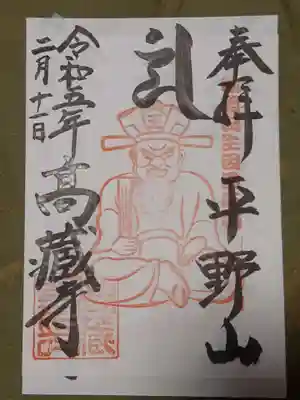 奉拝 平野山
礼
高蔵寺
令和五年
二月十一日